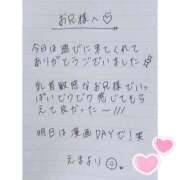 お兄様へ♡
今日は遊びに来てくれて
ありがとうございました
乳首敏感なお兄様でいっ
ぱいビクビク感じてもら
えて良かった〜!!!
明日は漫画DAYで!笑
えまより☺